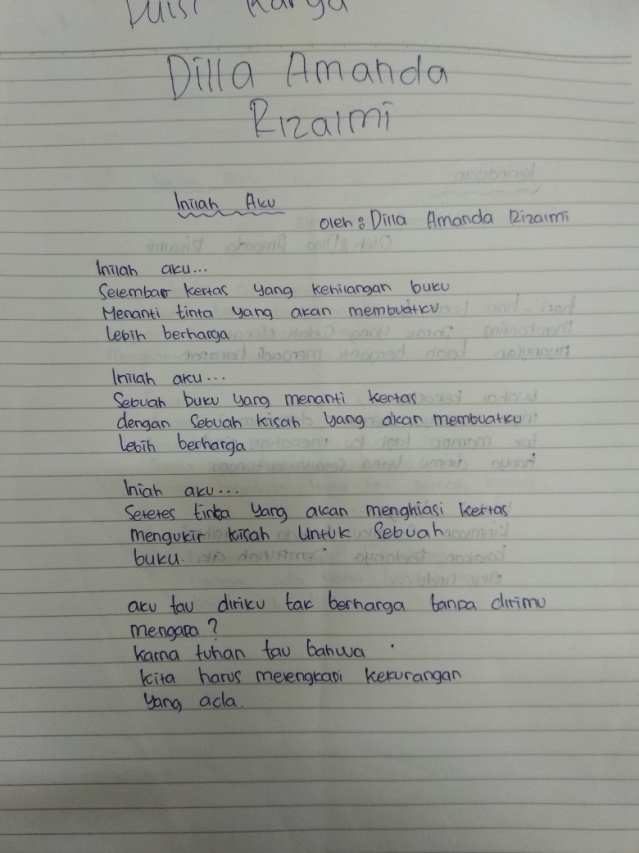 Puisi Karya
Dilla Amanda
Rizalmi
Inilah Aku
oleh : Dilla Amanda Rizalmi
Inilah aku...
Selembar kertas yang kehilangan buku
Menanti tinta yang akan membuatku
lebih berharga
Inilah aku...
Sebuah buku yang menanti kertas
dengan sebuah kisah yang akan membuatku
lebih berharga
Iniah aku...
Setetes tinta yang akan menghiasi kertas
mengukir kisah untuk sebuah
buku.
aku tau diriku tak berharga tanpa dirimu
mengapa?
karna tuhan tau bahwa
kita harus melengkapi kekurangan
yang ada.